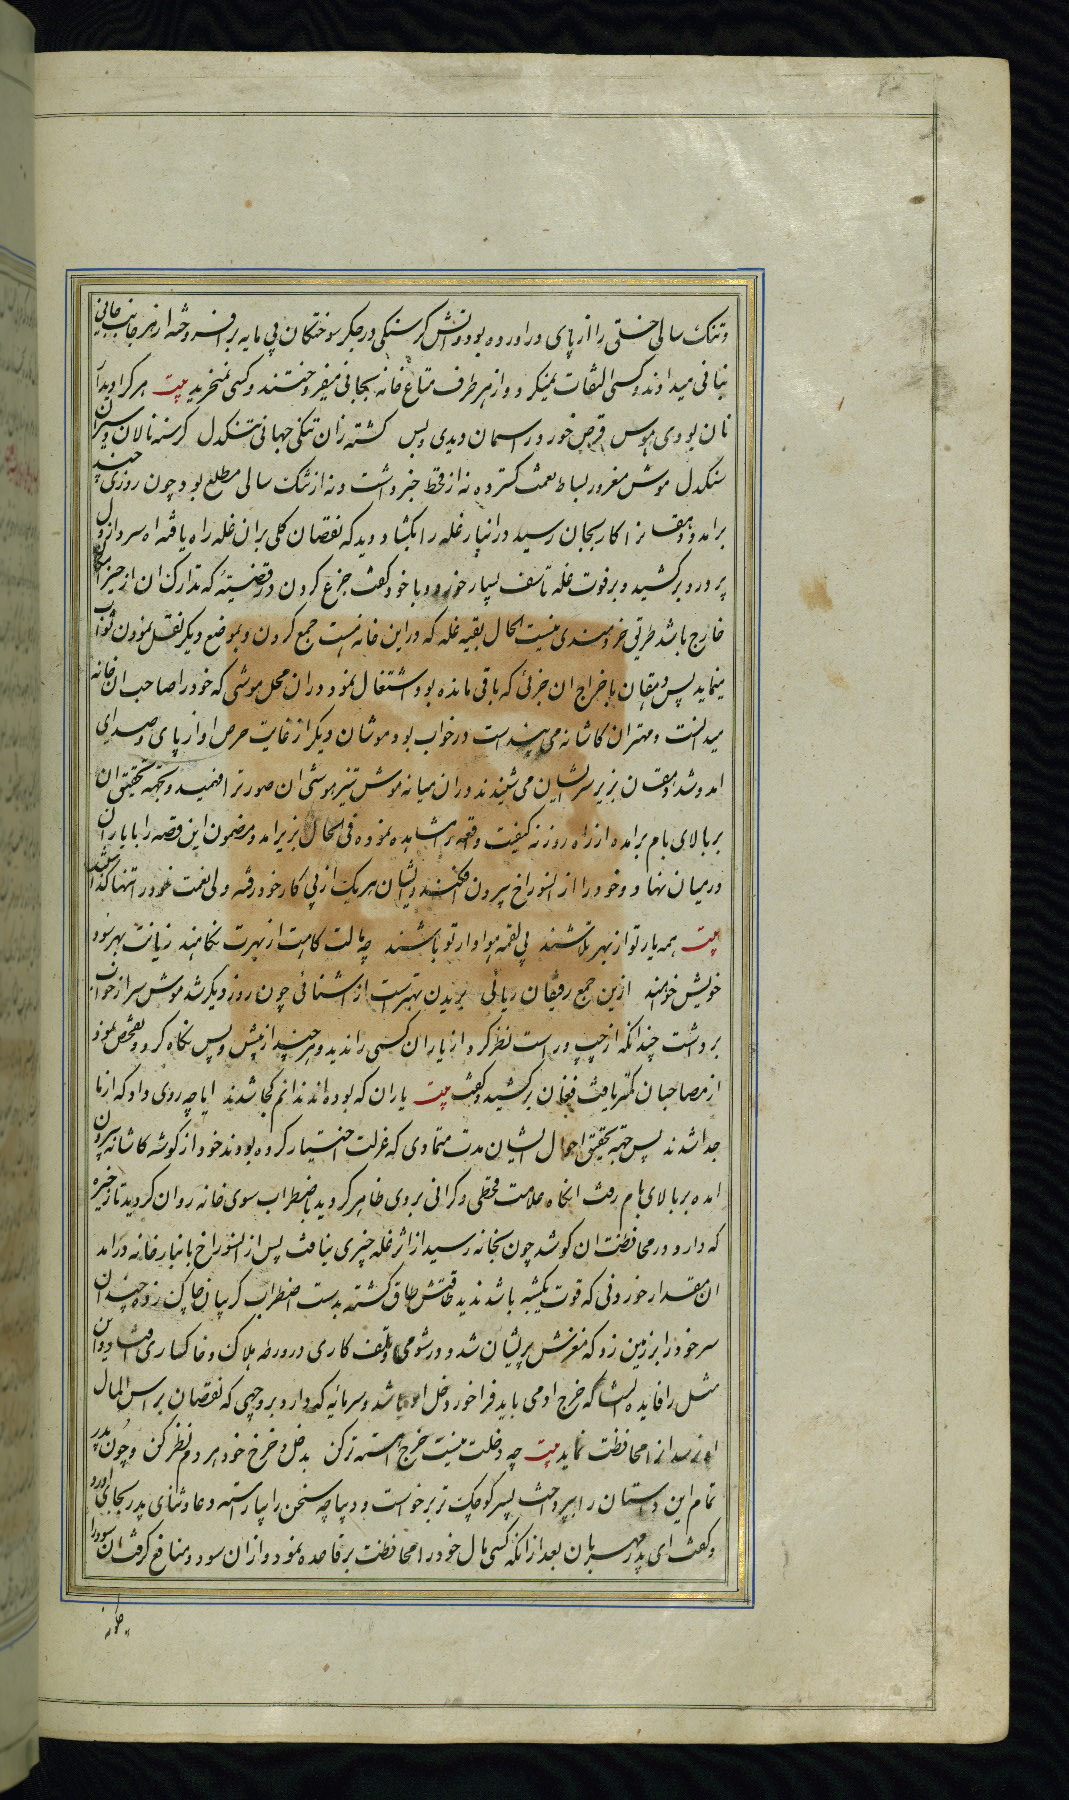 و تنک سالی خلقی را از پای در اورده بود و اتش کرسنکی در جکر سوختکان بی مایه بر افروخته از هر جانب جانی
بنانی میدادند و کسی التفات نمیکرد و از هر طرف متاع خانه بجانی میفروختند و کسی نمیخرید بیت هر کرا دیدار
نان بودی هوس قرص خور در اسمان دیدی و بس کشته زان تنکی جهانی تنکدل کرسنه نالان و سیران
سنکدل موش مغرور بساط نعمت کسترده نه از قحط خبر داشت و نه از تنک سالی مطلع بود چون روزی چند
برامد و دهقانرا کار بجان رسید در انبار غله را بکشاد دید که نقصان کلی بران غله راه یافته اه سرد از دل
پر درد برکشید و بر فوت غله تاسف بسیار خورد و با خود کفت جزع کردن در قضیتهٔ که تدارک ان از حیز امکان
خارج باشد طریق خردمندی نیست الحال بقیه غله که در این خانه است جمع کردن و بموضع دیکر نقل نمودن صواب
مینماید پس دهقان باخراج ان جزئی که باقی مانده بود اشتغال نمود و دران محل موشی که خود را صاحب ان خانه
میدانست و مهتران کاشانه می پنداشت در خواب بود و موشان دیکر از غایت حرص اواز پای و صدای
امد و شد دهقان بزیر سر ایشان می شنیدند دران میانه موش تیز هوشی ان صورترا فهمید و بجهة تحقیق ان
بر بالای بام برامده از راه روزنه کیفیت واقعه را مشاهده نموده فی الحال بزیر امد و مضمون این قصه را با یاران
در میان نهاد و خود را از انسوراخ بیرون افکند و ایشان هر یک از پی کار خود رفته ولی نعمت خود را تنها کذاشتند
بیت همه یار تو از بهر تراشند پی لقمه هوادار تو باشند چو مالت کاهد از مهرت بکاهند زیانت بهر سود
خویش خواهند ازین جمع رفیقان ریائی بریدن بهتر است از اشنائی چون روز دیکر شد موش سر از خواب
برداشت چندانکه از چپ و راست نظر کرد از یاران کسی را ندید و هر چند از پیش و پس نکاه کرد و تفحص نمود
از مصاحبان کمتر یافت فغان برکشید و کفت بیت یاران که بوده اند ندانم کجا شدند ایا چه روی داد که از ما
جدا شدند پس جهة تحقیق احوال ایشان مدت متمادی که عزلت اختیار کرده بود ند خود از کوشه کاشانه بیرون
امده بر بالای بام رفت انکاه علامت قحطی و کرانی بروی ظاهر کردید باضطراب سوی خانه روان کردید تا ذخیره
که دارد در محافظت ان کوشد چون بخانه رسید از اثر غله چیزی نیافت پس از انسوراخ بانبار خانه درامد
ان مقدار خوردنی که قوت یکشبه باشد ندید طاقتش طاق کشته بدست اضطراب کریبان چاک زده چندان
سر خود را بر زمین زد که مغزش پریشان شد و در شومی تلف کاری در ورطه هلاک و خاکساری افتاد و این
مثل را فایده انست که خرج ادمی باید فراخور دخل او باشد و سرمائیه که دارد بر وجهی که نقصان براس المال
او نرسد از محافظت نماید بیت چو دخلت نیست خرج اهسته تر کن بدخل و خرج خود هر دم نظر کن و چون پدر
تمام این داستان را بپرداخت پسر کوچکتر برخواست و دیباچه سخن را بیاراسته و دعا و ثنای پدر بجای اورد
و کفت ای پدر مهربان بعد از انکه کسی مال خود را محافظت بر قاعده نمود و از ان سود و منافع کرفت ان سود را